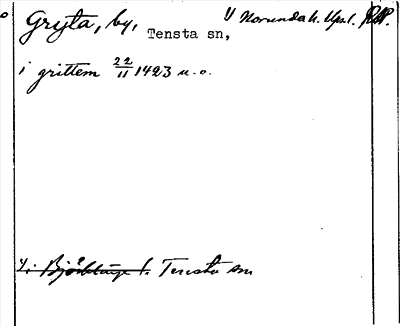 Gryta, by, Tensta sn, V Norunda h. Upsl.
i grittem 22/11 1423 u.o.
Y. Björklinge s. Tensta sn